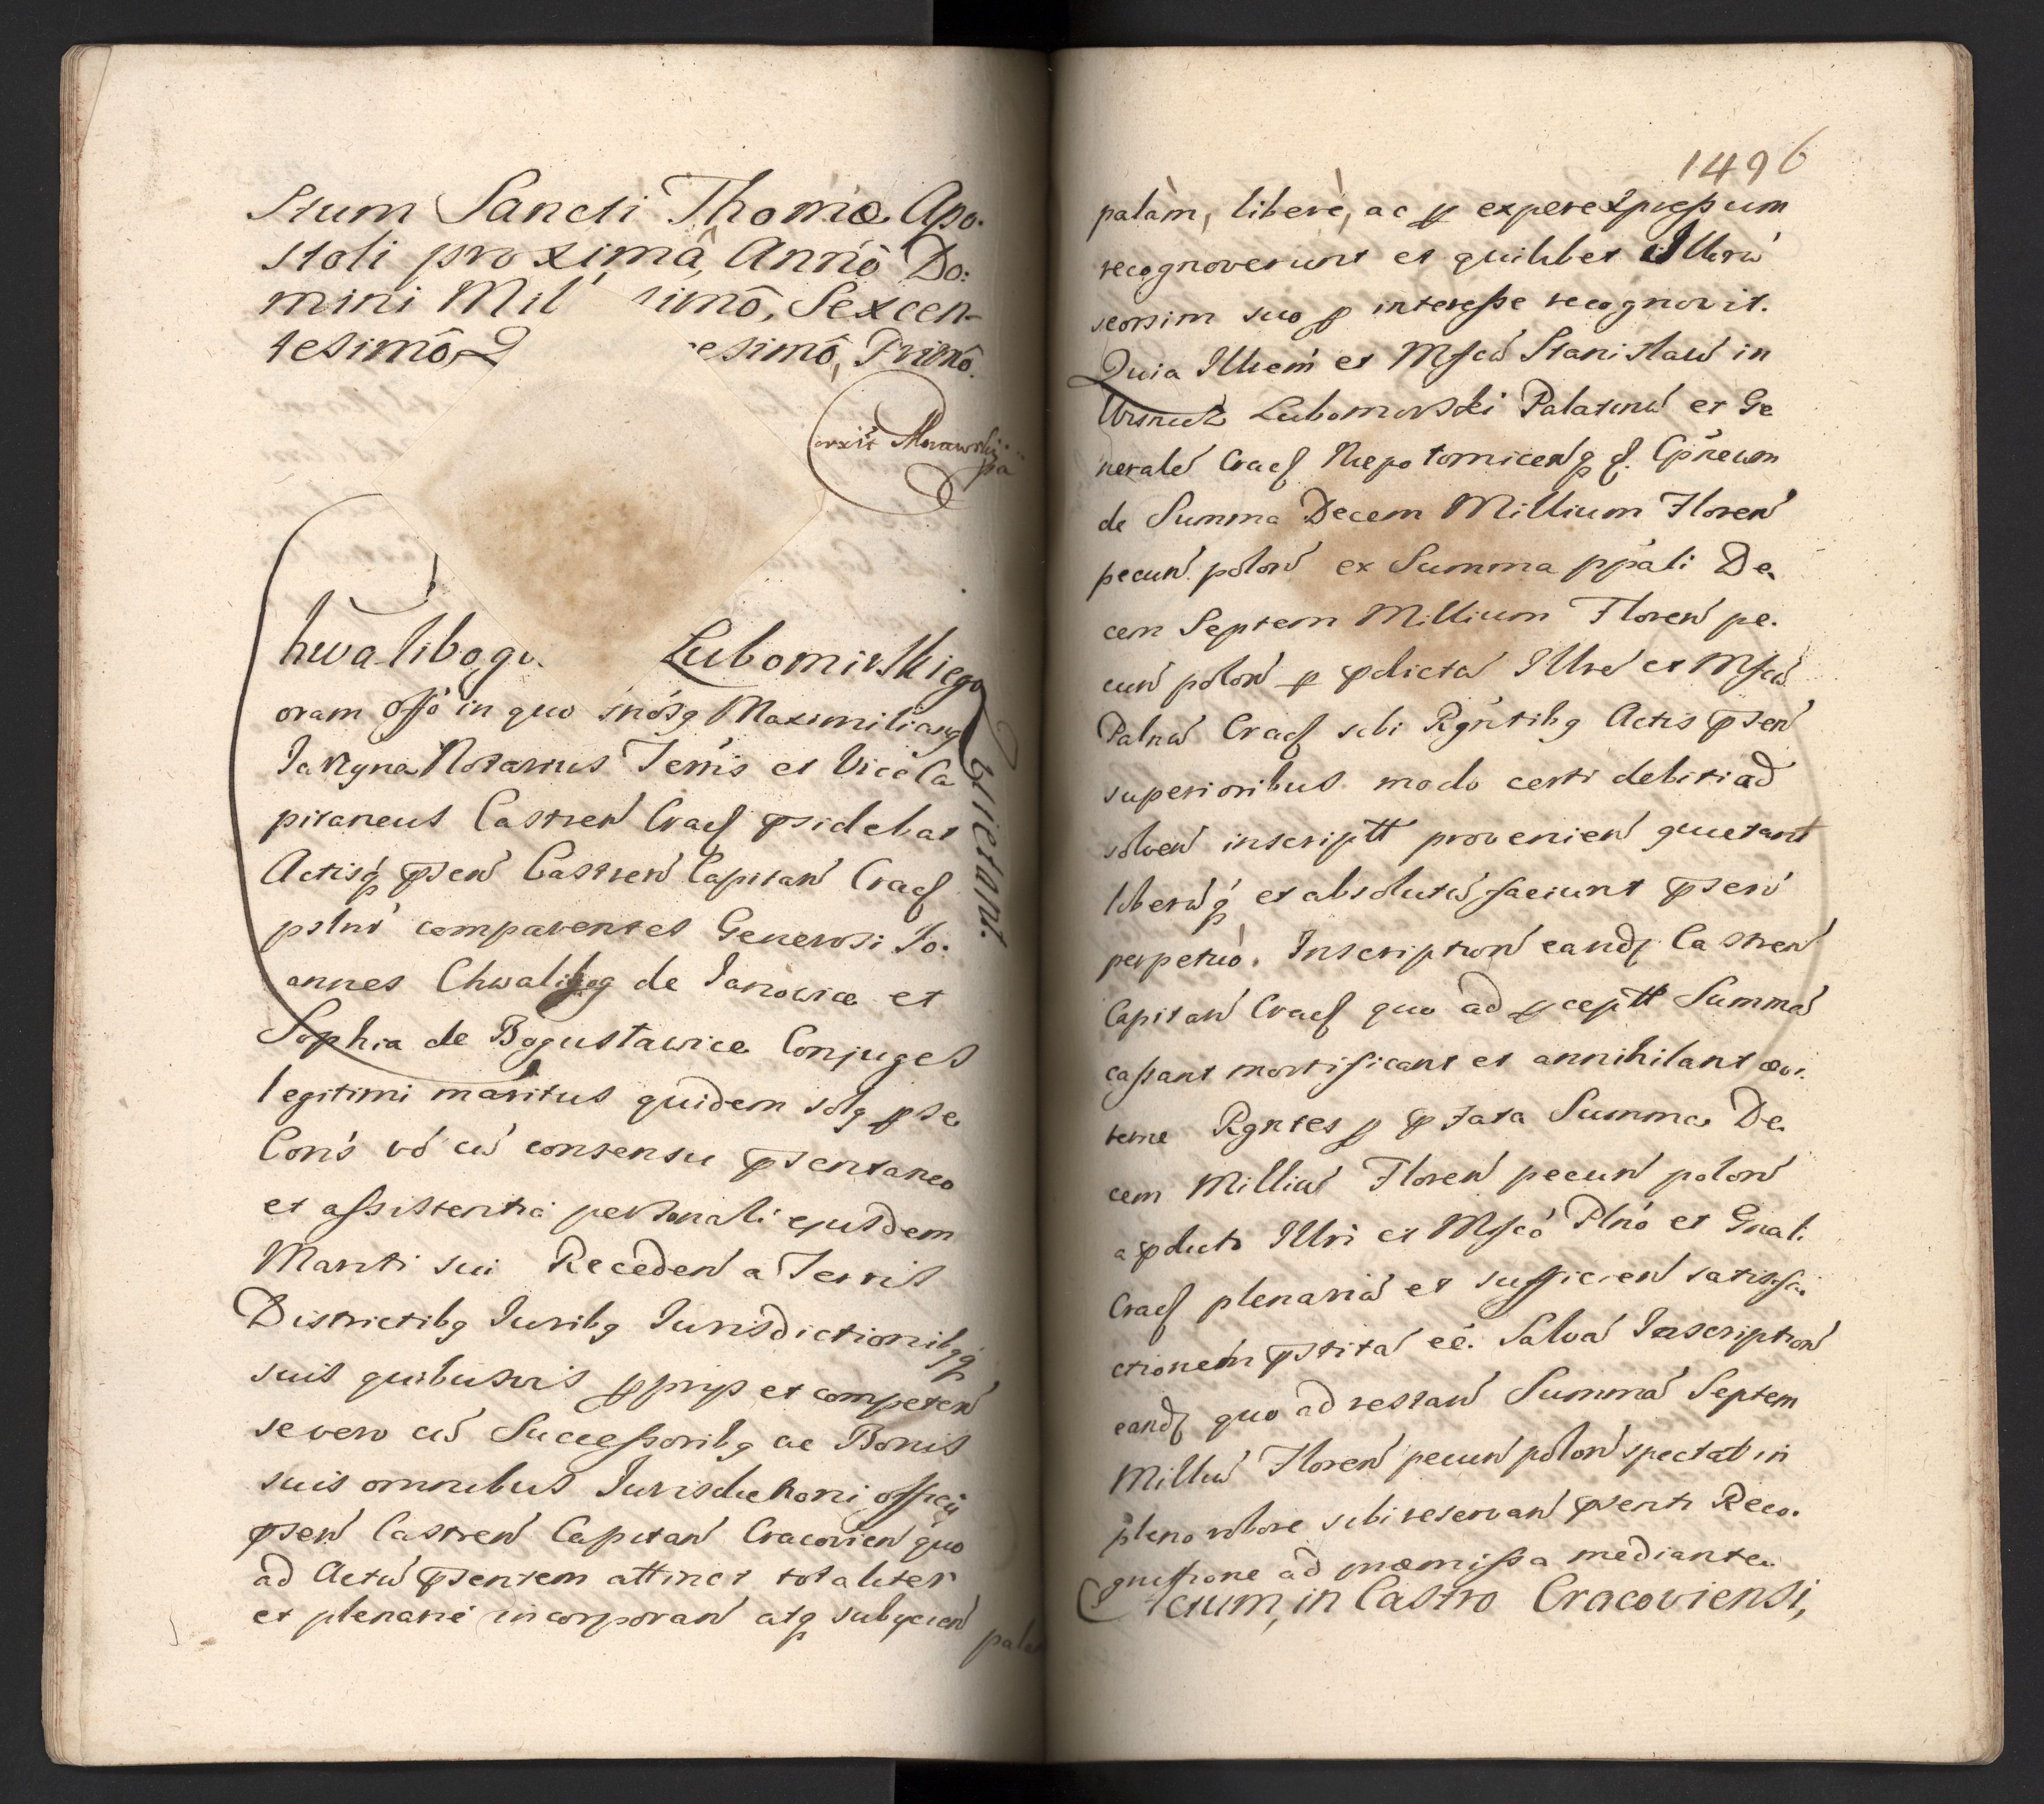 stum Sancti Thomæ Apo:
stoli proximâ, Annô Do:
mini Mil simô, Sexcen-
tesimô, esimô, Primô.
Morawski
pa
hwalibogo Lubomirskiego
Quietant.
oram offo in quo Gnosq Maximilianq
Notarius Terris et Vice Ca
pitaneus Castren Cracˢ psidebat
Actisq psen Castren Capitan Cracˢ
pslnr comparentes Generosi Jo:
annes Chwalibog de Janowice et
Sophia de Bogusławice Conjuges
legitimi maritus quidem solq p se
Cons vo cu consensu psentaneo
et assistentia personali ejusdem
Mariti sui Receden a Terris
Districtibq Juribq Jurisdictionibqq
suis quibusvis pprijs et competen
se vero cu Successoribq ac Bonis
suis omnibus Jurisdictioni officij
psen Castren Capitan Cracovien quo
ad Actu psentem attinet totaliter
et plenarie incorporan atq subijcien
pala
1496
palàm, liberè, ac p expressum
recognoverunt et quilibet illoru
seorsim suo p interesse recognovit.
Quia Illrem et Mfcu Stanislau in
Wisnicz Lubomirski Palatinu et Ge
nerale Cracˢ Niepolomicenq
de Summa Decem Millium Floren
pecun polon ex Summa ppali De,
cem Septem Millium Floren pe.
cun polon p pdictu Illre et Mfcu
Palnu Cracˢ sibi Rgntibq Actis psen
superioribus modo certi debiti ad
solven inscriptt provenien quietant
liberuq et absolutu faciunt psen
perpetuò. Inscription eandˢ Castren
Capitan Cracˢ quo ad pceptt Summa
cassant mortificant et annihilant
Rgntes p pfata Summa De
cem Milliu Floren pecun polon
a pdicto Illri et Mfco Plno et Gnali
Cracˢ plenaria et sufficien satisfa.
ctionem pstita eē. Salva Inscription
eandˢ quo ad restan Summa Septem
Milliu Floren pecun polon spectat in
pleno robore sibi reservan psenti Reco.
gnitione ad præmissa mediante.
Actum, in Castro Cracoviensi,